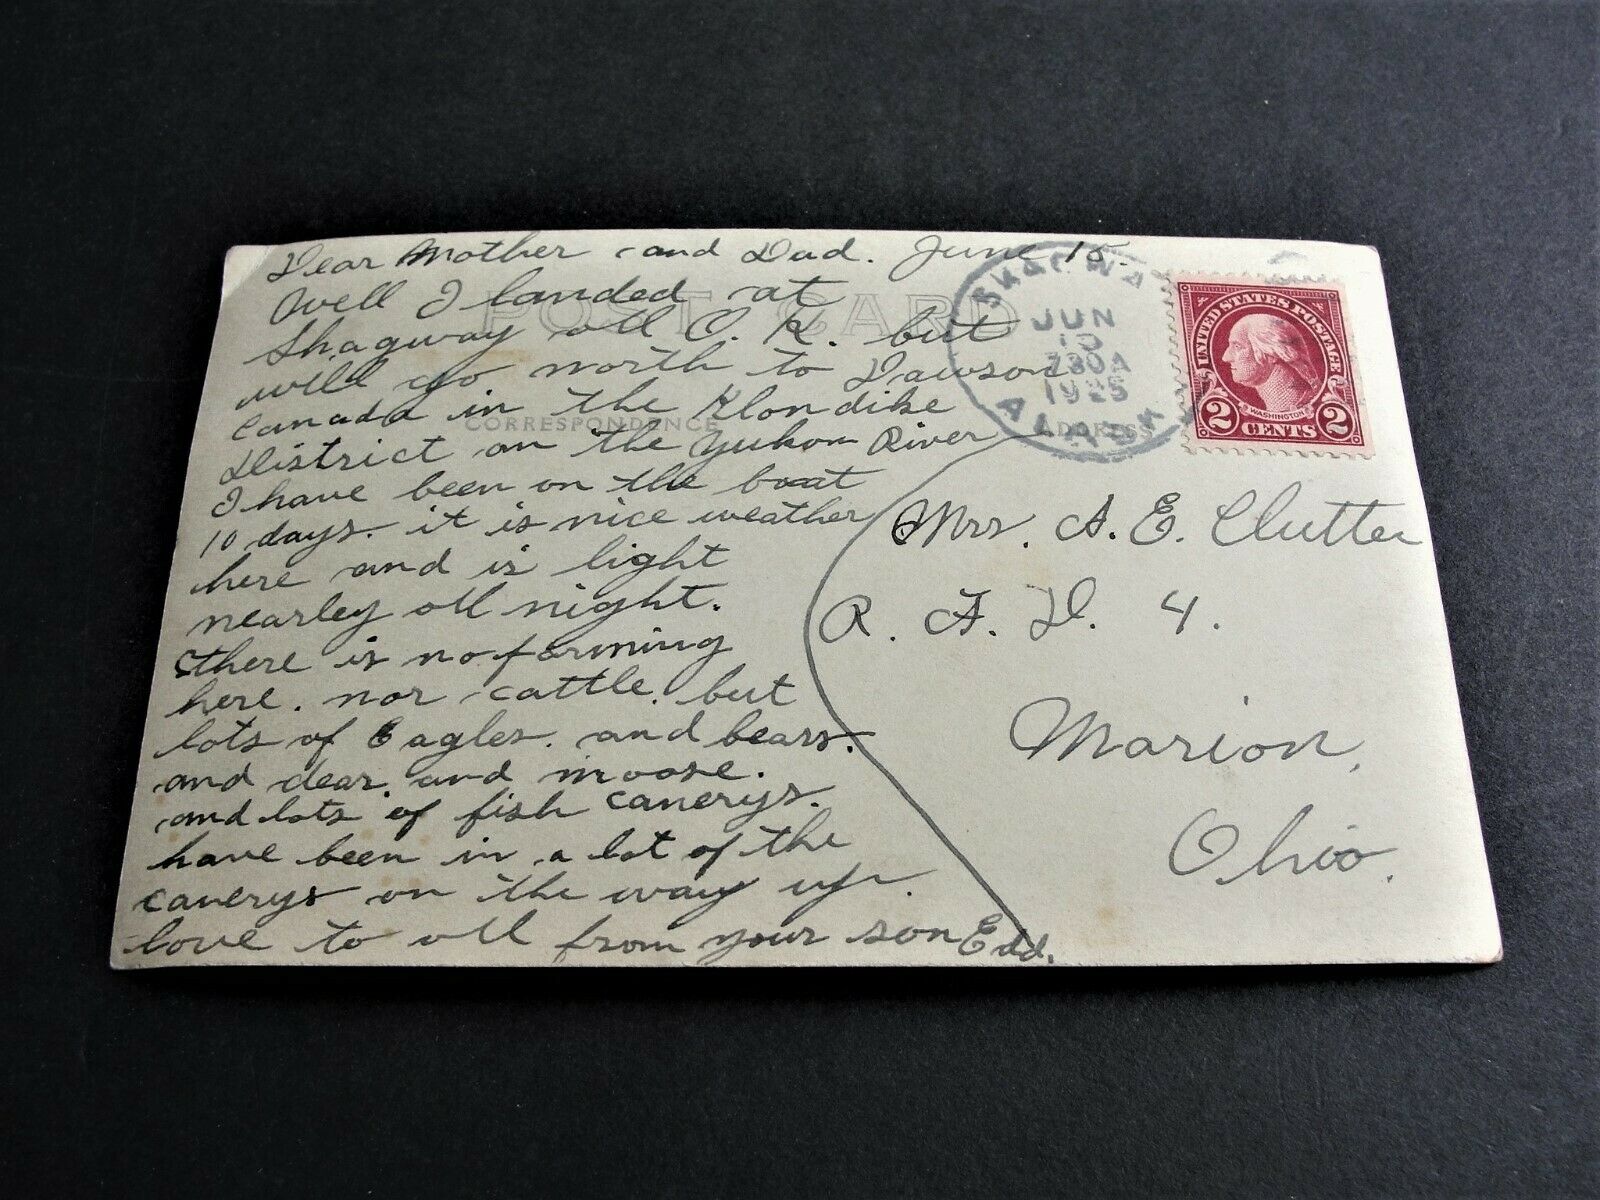 Dear Mother and Dad. June 15.
Well I landed at
Shagway all O. K. but
will go north to Dawson
Canada in the Klondike
District on the Yukon River
I have been on the boat
10 days. it is nice weather
here and is light
nearley all night.
there is no farming
here. nor cattle. but
lots of Eagles. and bears.
and dear. and moose.
and lots of fish canerys.
have been in a lot of the
canerys on the way up.
love to all from your son Edd.
POST CARD
CORRESPONDENCE
ADDRESS
SKAGWAY
JUN
15
730A
1925
ALASKA
UNITED STATES POSTAGE
WASHINGTON
2 CENTS 2
Mrs. A. E. Clutter
R. F. D. 4.
Marion,
Ohio.